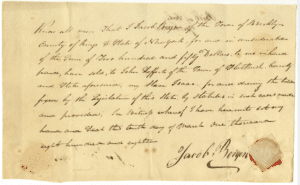 Know all men that I Jacob Bergen of the Town of Brooklyn
County of Kings & State of New York for and in consideration
of the Sum of Two hundred and fifty Dollars, to me in hand
paid, have sold, to John Lefferts of the Town of Flatbush County
and State aforesaid, my Slave Isaac, for and during the time
given by the Legislature of this State by Statutes in such cases made
and provided. In Witness whereof I have hereunto set my
hand and Seal this tenth day of March one thousand
eight hundred and eighteen
Jacob Bergen